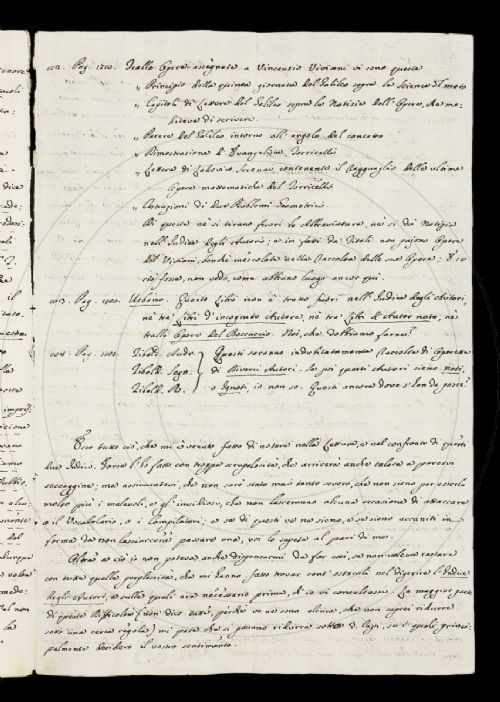 102. Pag. 1720. Tralle Opere assegnate a Vincenzio Viviani vi sono queste
„ Principio della quinta giornata del Galileo sopra la Scienza del moto
„ Capitoli di Lettere del Galileo sopra la Notizia dell'Opere, che me-
ditava di scrivere.
„ Parere del Galileo intorno all'angolo del contatto
„ Dimostrazione di Evangelista Torricelli
„ Lettera di Lodovico Serenai contenente il Ragguaglio delle ultime
Opere mattematiche del Torricelli
„ Costruzioni di due Problemi Geometrici
Di queste nè si tirano fuori le Abbreviature, nè si dà Notizia
nell'Indice degli Autori; e in fatti da' Titoli non pajono Opere
del Viviani, benchè mescolate nella Raccolta delle sue Opere; e se
ciò fosse, non vedo, come abbiano luogo ancor qui.
103. Pag. 1200. Urbano. Questo Libro non è tratto fuori nell'Indice degli Autori,
nè tra' Libri d'incognito Autore, nè tra' Libri d'Autor noto, nè
tralle Opere del Boccaccio. Noi, che dobbiamo farne?
104. Pag. 1202. Zibald. Andr.
Zibald. Segn.
Zibald. R.
Questi saranno indubitatamente Raccolte di Operette
di diversi Autori. Se poi questi Autori sieno noti,
o ignoti, io non so. Questi ancora dove s'han da porre?
Ecco tutto ciò, che mi è venuto fatto di notare nella Lettura, e nel confronto di questi
due Indici. Forse l'ho fatto con troppa scrupolosità, che arriverà anche talora a parervi
seccaggine; ma assicuratevi, che non sarò stato mai tanto severo, che non sieno per esserlo
molto più i malevoli, e gl'invidiosi, che non lasceranno alcuna occasione di attaccare
o il Vocabolario, o i Compilatori; e se di questi ve ne sieno, e se sieno accaniti in
forma da non lasciarcene passare una, voi lo sapete al pari di me.
Oltre a ciò io non poteva anche dispensarmi da far così, se non voleva restare
con tutte quelle perplessità, che mi hanno fatto trovar cent'ostacoli nel digerire l'Indice
degli Autori, e sulle quali era necessario prima, ch'io vi consultassi. La maggior parte
di queste Difficoltà (non dico tutte, perchè ve ne sono alcune, che non saprei ridurre
sotto una certa regola) mi pare che si possano ridurre sotto 3. Capi, su i quali princi-
palmente desidero il vostro sentimento.